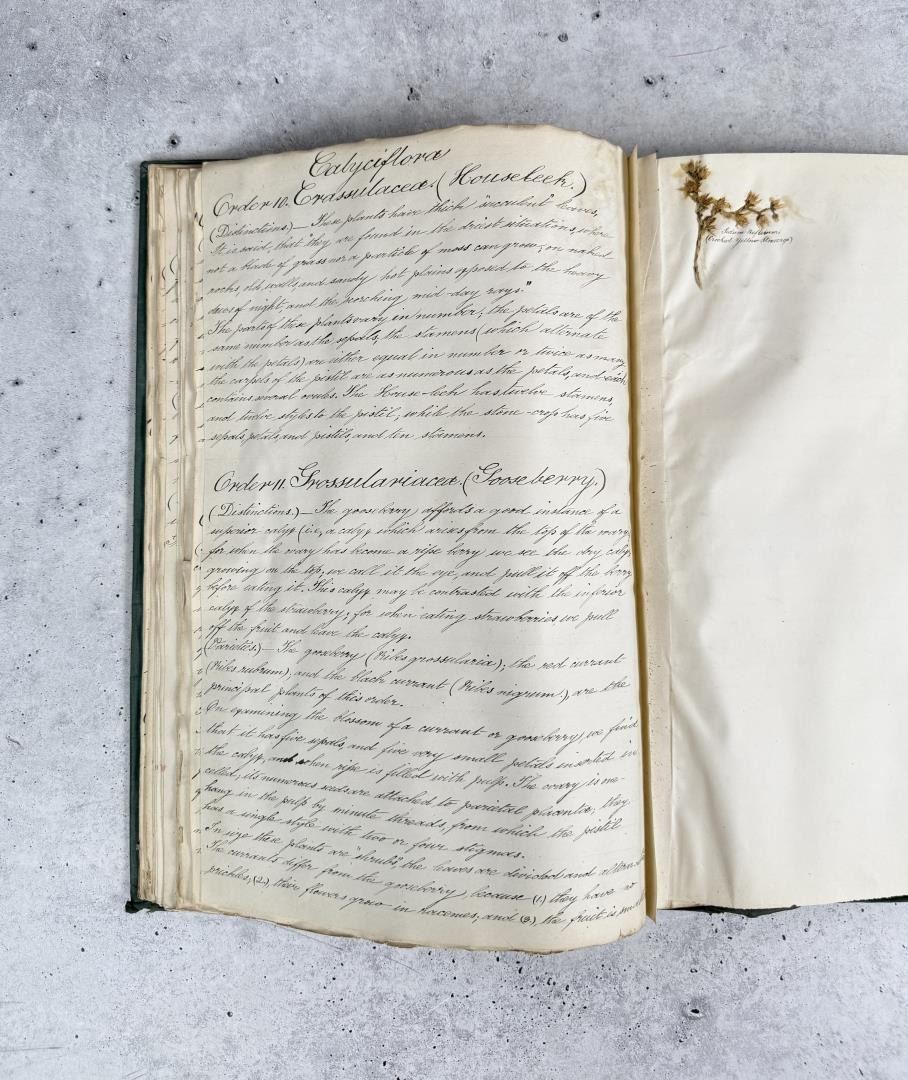 Calyciflora
Order 10. Crassulaceæ. (Houseleek.)
(Distinctions).— These plants have thick "succulent leaves,
It is said, that they are found in the driest situations, where
not a blade of grass nor a particle of moss can grow, on naked
rocks, old walls, and sandy hot plains opposed to the heavy
dews of night, and the scorching mid-day rays."
The parts of these plants vary in number, the petals are of the
same number as the sepals, the stamens (which alternate
with the petals) are either equal in number or twice as many,
the carpels of the pistil are as numerous as the petals, and each
contains several ovules. The House-leek has twelve stamens,
and twelve styles to the pistil, while the stone-crop has five
sepals, petals, and pistils, and ten stamens.
Order 11. Grossulariaceæ. (Gooseberry.)
(Distinctions.)— The gooseberry affords a good instance of a
superior calyx (i.e., a calyx which arises from the top of the ovary,
for when the ovary has become a ripe berry we see the dry calyx
growing on the top, we call it the eye, and pull it off the berry
before eating it. This calyx may be contrasted with the inferior
calyx of the strawberry; for when eating strawberries we pull
off the fruit and leave the calyx.
(Varieties).— The gooseberry (Ribes grossularia), the red currant
(Ribes rubrum), and the black currant (Ribes nigrum.), are the
principal plants of this order.
On examining the blossom of a currant or gooseberry, we find
that it has five sepals, and five very small petals inserted in
the calyx, and when ripe is filled with pulp. The ovary is one-
celled; its numerous seeds are attached to parietal placentæ, they
hang in the pulp by minute threads, from which the pistil
has a single style with two or four stigmas.
In size these plants are "shrubs", the leaves are divided and alternate
The currants differ from the gooseberry, because (1.) they have no
prickles, (2.), their flowers grow in racemes, and (3.), the fruit is small
Sedum Reflexum
(Crooked Yellow Stonecrop)